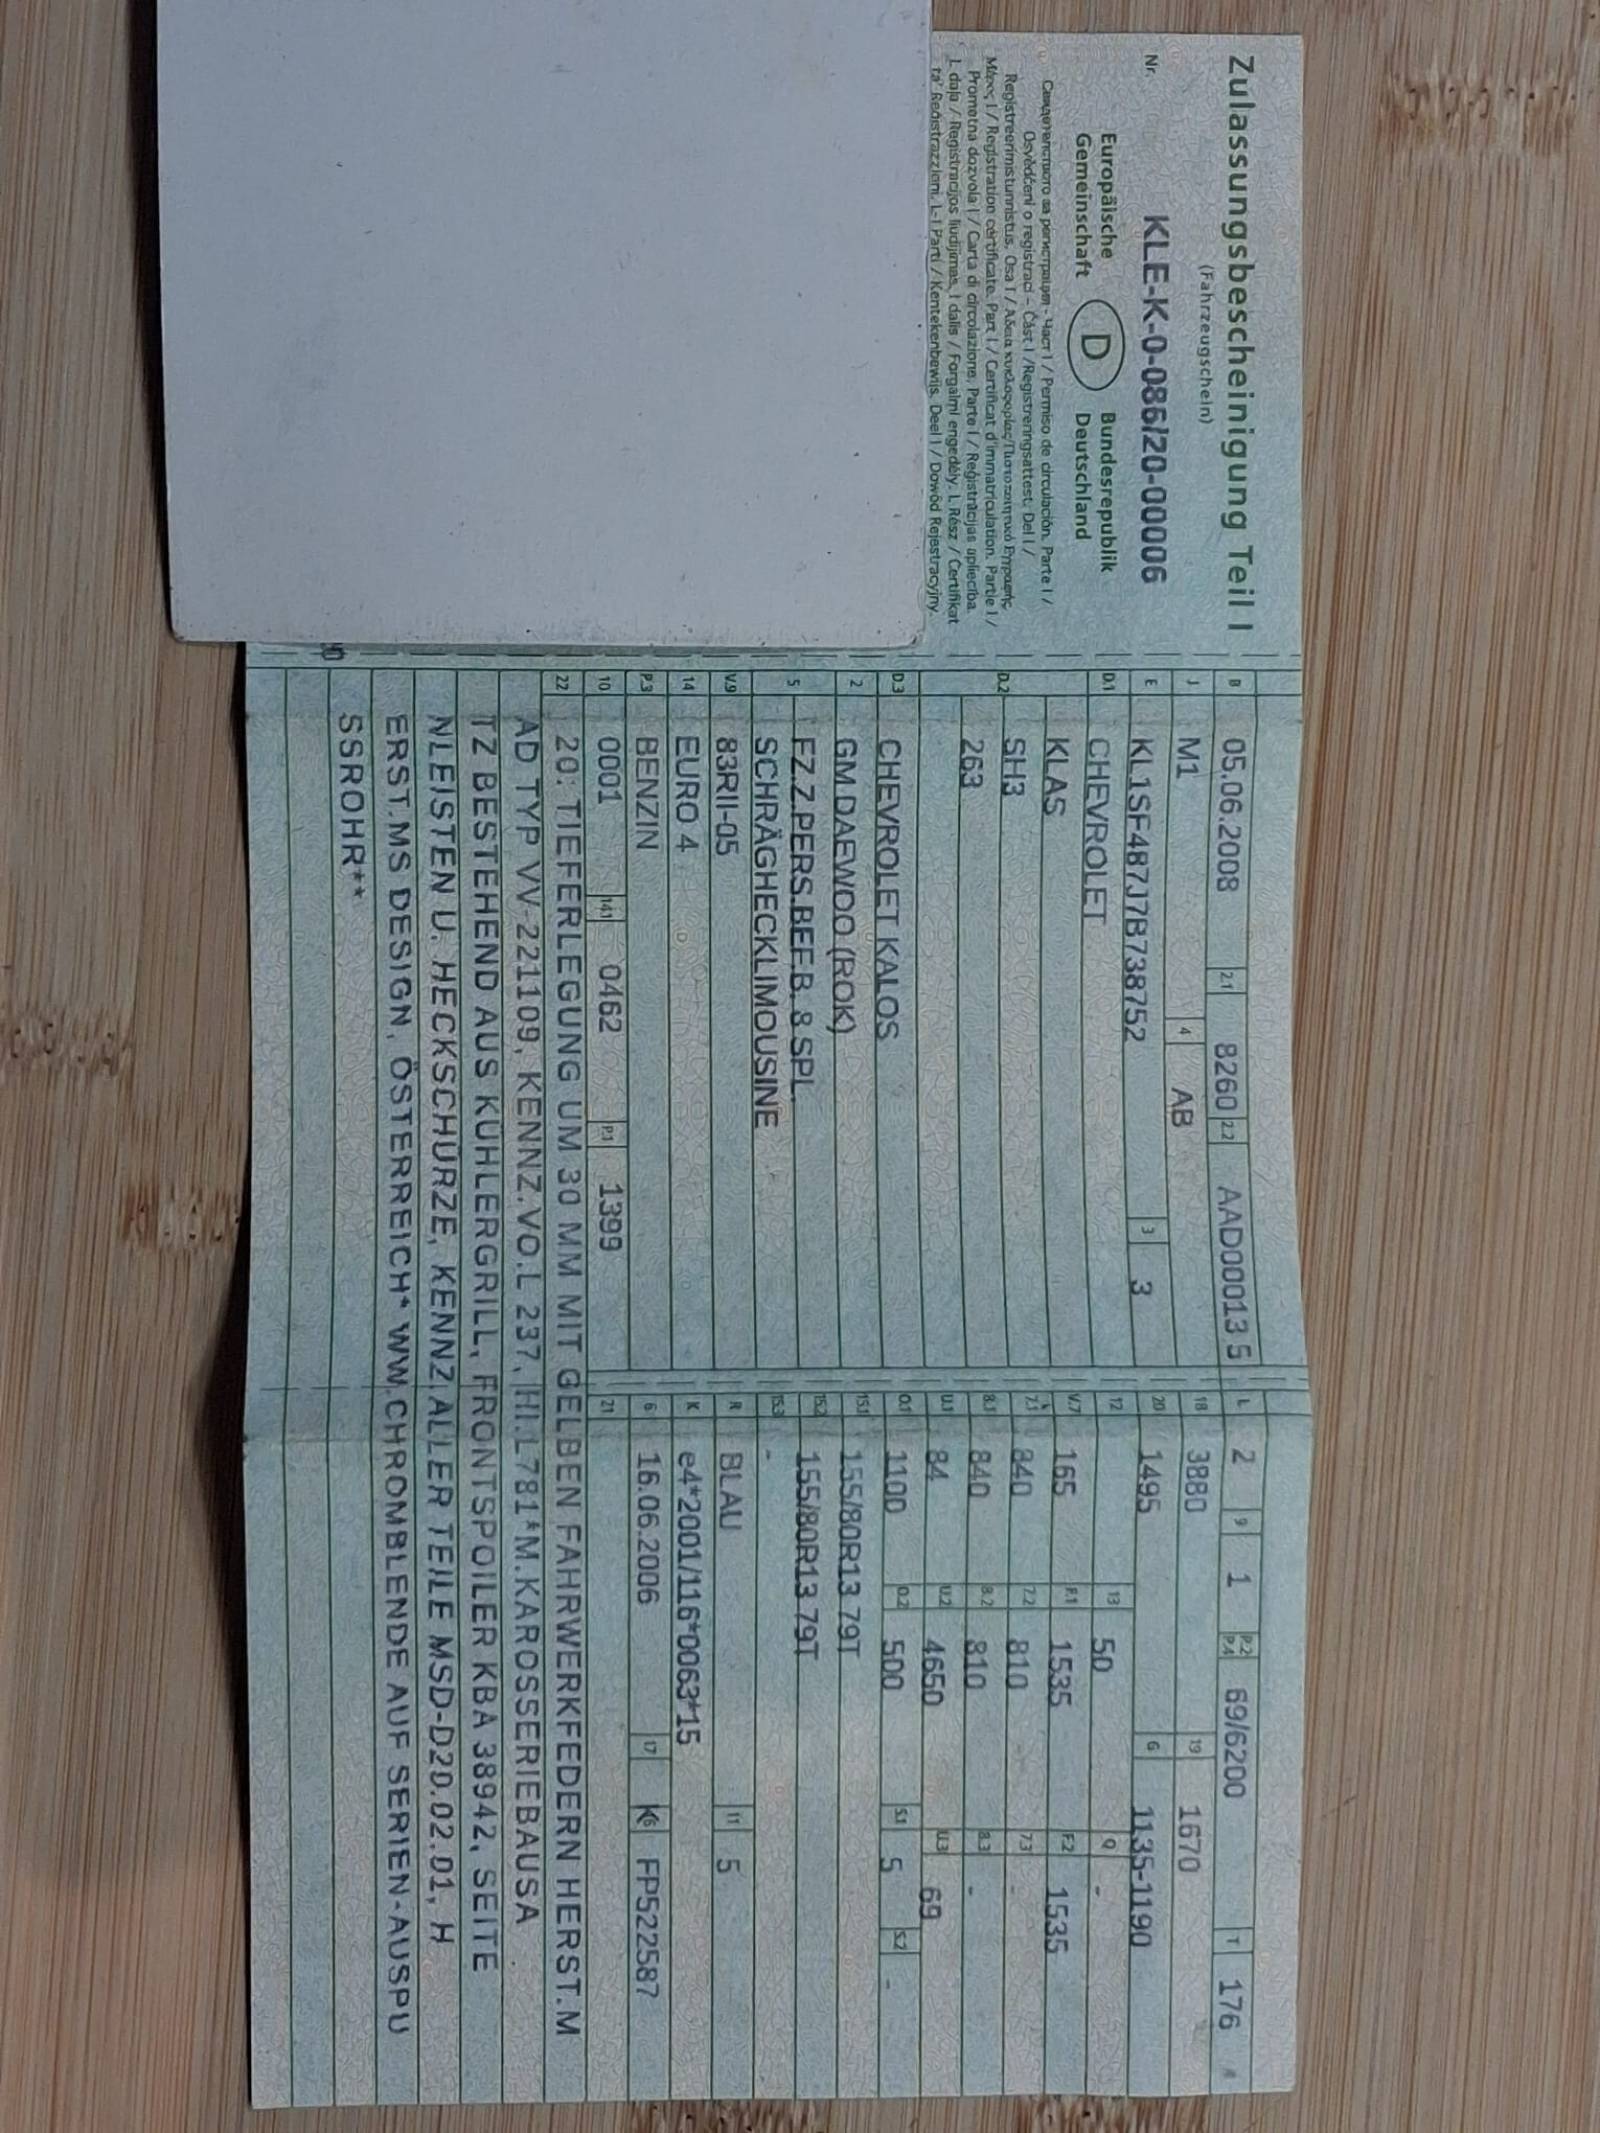 Zulassungsbescheinigung Teil I
(Fahrzeugschein)
Nr. KLE-K-0-086/20-00006
Europäische Gemeinschaft D Bundesrepublik Deutschland
Свидетелство за регистрация - Част I / Permiso de circulación. Parte I /
Osvědčení o registraci – Část I / Registreringsattest. Del I /
Registreerimistunnistus. Osa I / Άδεια κυκλοφορίας/Πιστοποιητικό Εγγραφής
Μέρος I / Registration certificate. Part I / Certificat d'immatriculation. Partie I /
Prometna dozvola I / Carta di circolazione. Parte I / Reģistrācijas apliecība.
I. daļa / Registracijos liudijimas. I dalis / Forgalmi engedély. I. Rész / Ċertifikat
ta' Reġistrazzjoni. L-I Parti / Kentekenbewijs. Deel I / Dowód Rejestracyjny.
B 05.06.2008 2.1 8260 2.2 AAD00013 5
J M1 4 AB
E KL1SF487J7B738752 3 3
D.1 CHEVROLET
KLAS
D.2 SH3
263
D.3 CHEVROLET KALOS
2 GM DAEWOO (ROK)
5 FZ.Z.PERS.BEF.B. 8 SPL.
SCHRÄGHECKLIMOUSINE
V.9 83RII-05
14 EURO 4
P.3 BENZIN
10 0001 14.1 0462 P.1 1399
L 2 9 1 P.2 P.4 69/6200 T 176
18 3880 19 1670
20 1495 G 1135-1190
12 13 50 Q -
V.7 165 F.1 1535 F.2 1535
7.1 840 7.2 810 7.3 -
8.1 840 8.2 810 8.3 -
U.1 84 U.2 4650 U.3 69
O.1 1100 O.2 500 S.1 5 S.2 -
15.1 155/80R13 79T
15.2 155/80R13 79T
15.3 -
R BLAU 11 5
K e4*2001/116*0063*15
6 16.06.2006 17 K 16 FP522587
21
22 20: TIEFERLEGUNG UM 30 MM MIT GELBEN FAHRWERKFEDERN HERST.M
AD TYP VV-221109, KENNZ.VO.L 237, HI.L781*M.KAROSSERIEBAUSA
TZ BESTEHEND AUS KÜHLERGRILL, FRONTSPOILER KBA 38942, SEITE
NLEISTEN U. HECKSCHÜRZE, KENNZ.ALLER TEILE MSD-D20.02.01, H
ERST.MS DESIGN, ÖSTERREICH* WW.CHROMBLENDE AUF SERIEN-AUSPU
SSROHR**